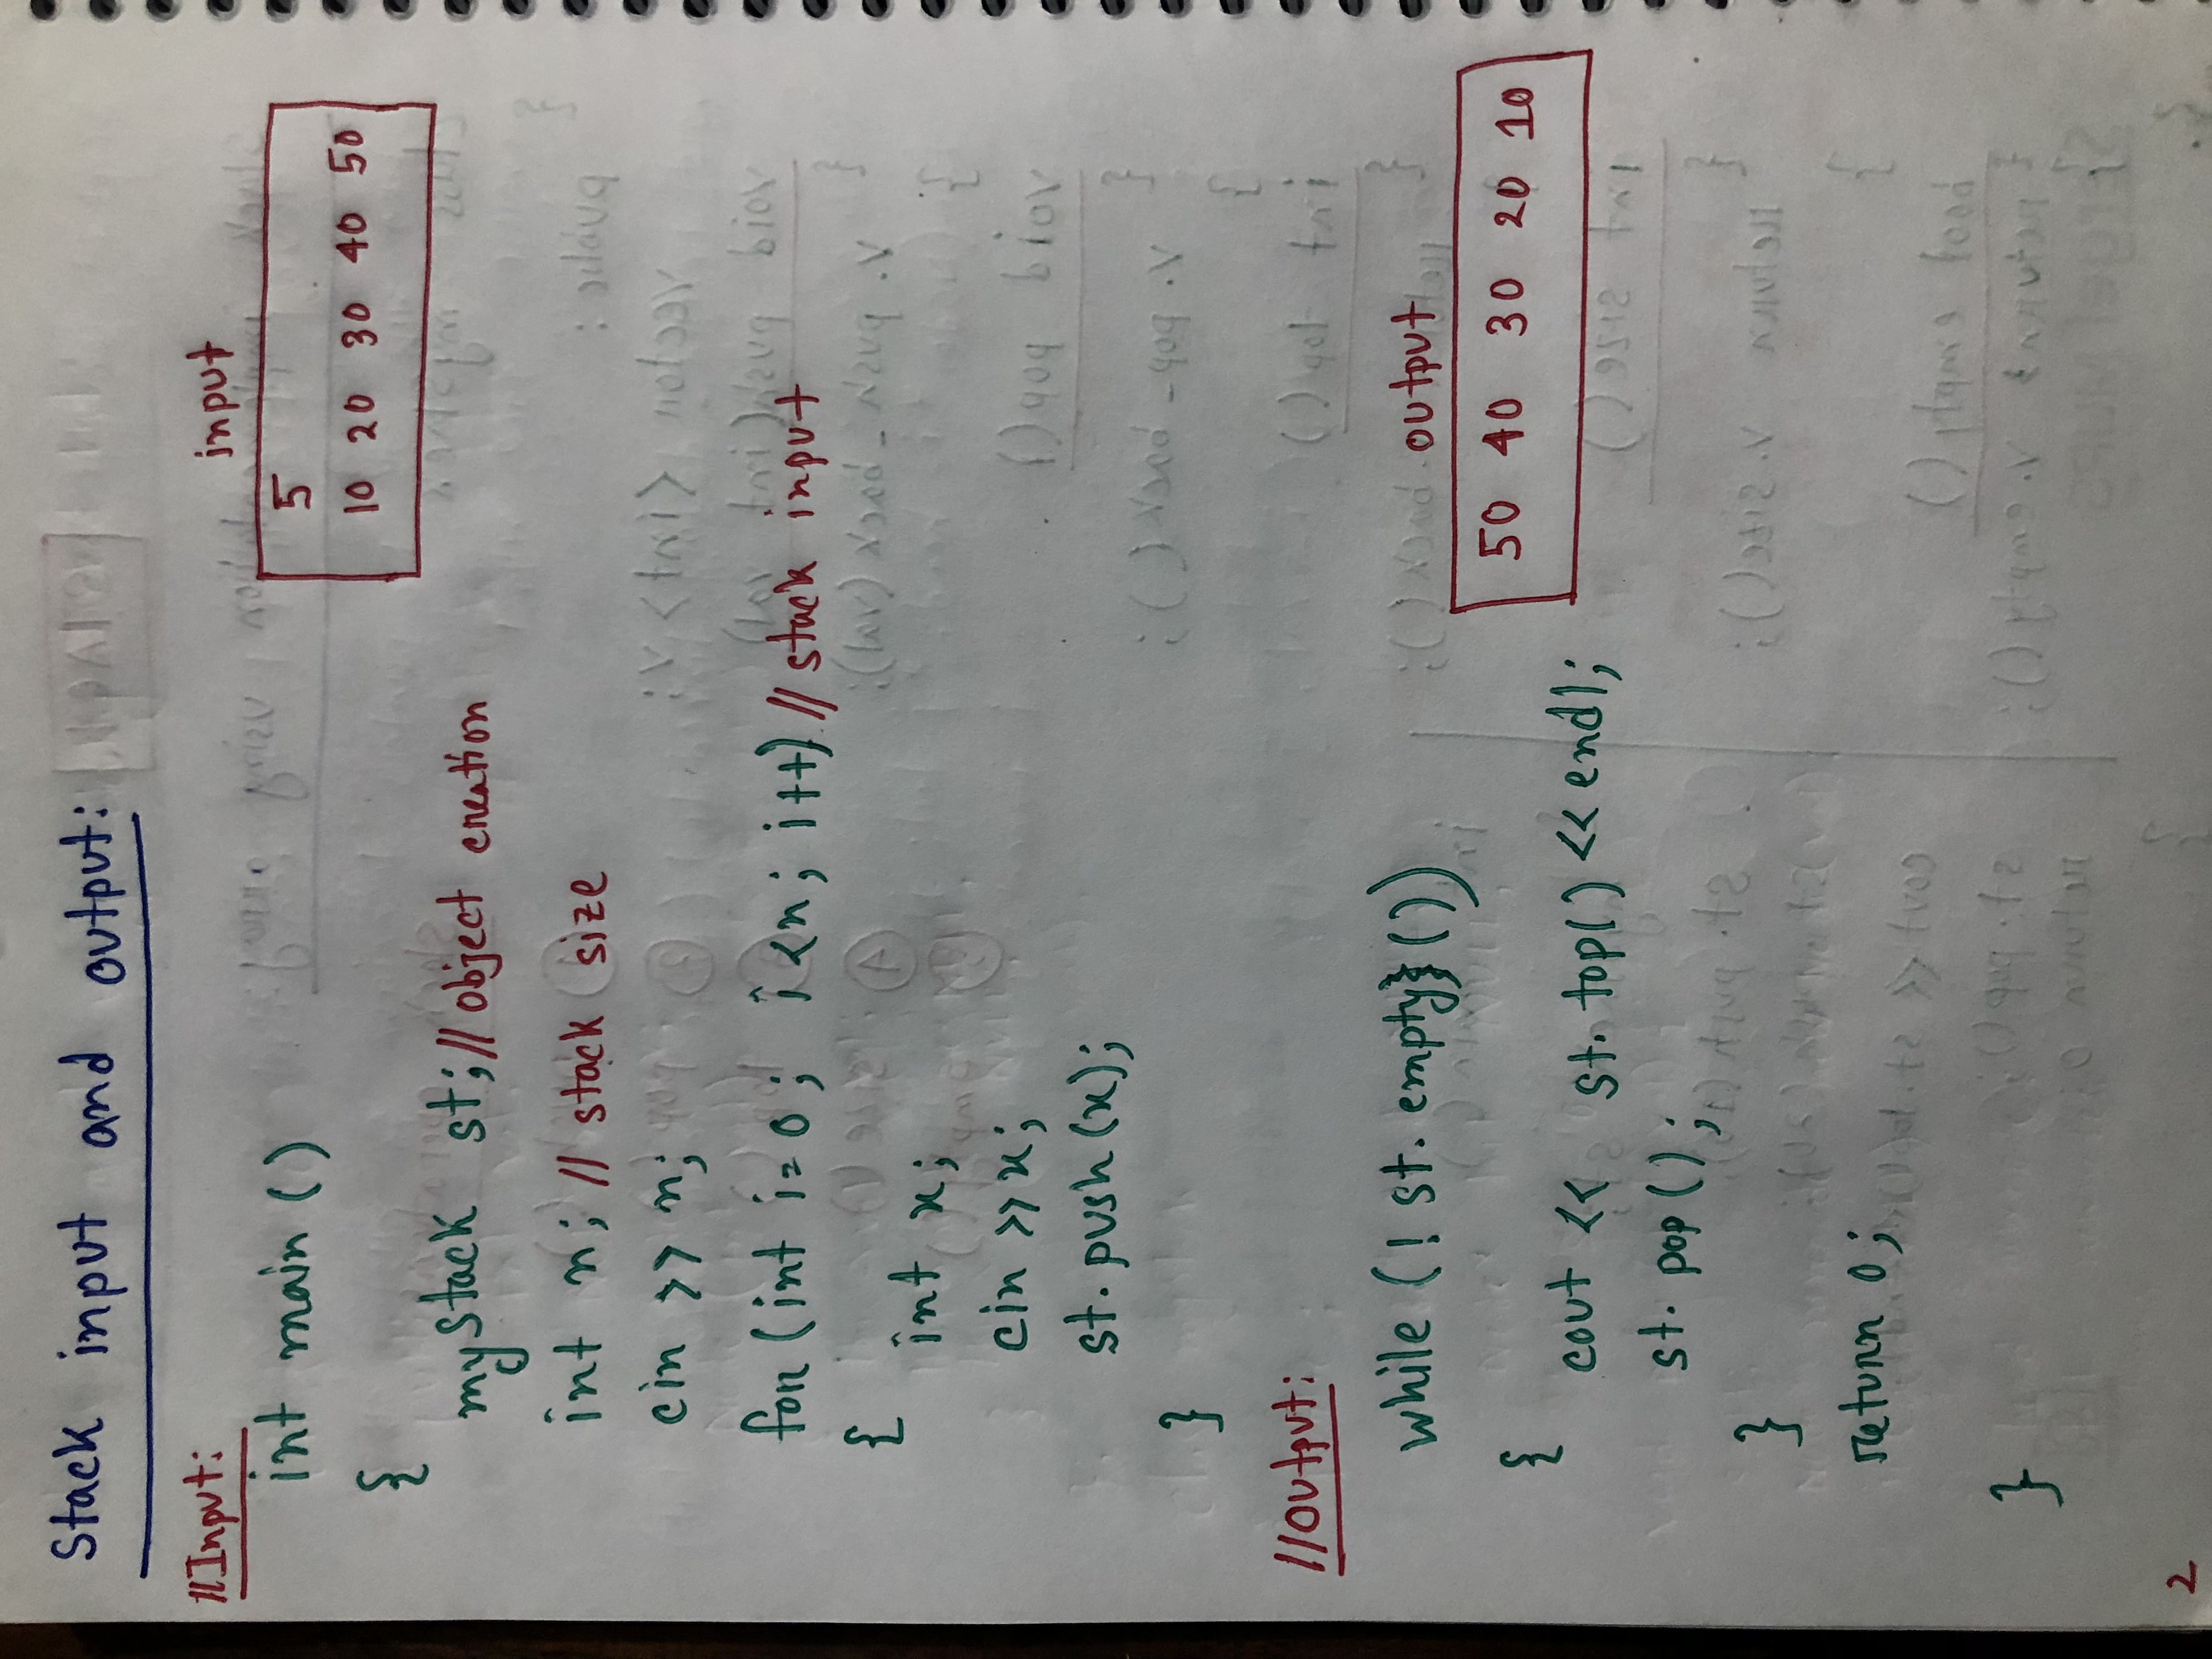 Stack input and output:
//Input:
int main ()
{
mystack st; // object creation
int n; // stack size
cin >> n;
for (int i=0; i<n; i++) // stack input
{
int x;
cin >> x;
st. push (x);
}
input
5
10 20 30 40 50
//Output:
while (! st. empty} ())
{
cout << st. top() << endl;
st. pop ();
}
return 0;
}
output
50 40 30 20 10
2